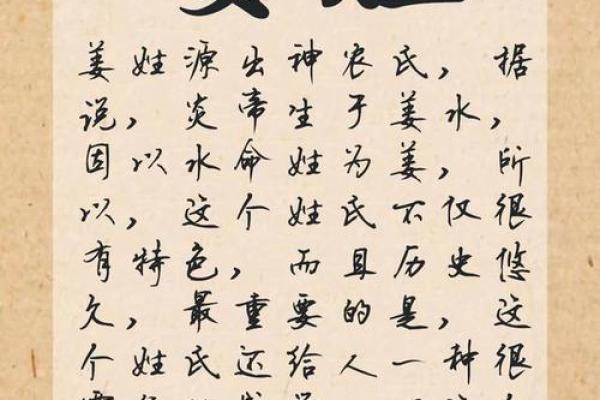 姜姓源出神农氏，据
说，炎帝生于姜水，
因以水命姓为姜，所
以，这个姓氏不仅很
有特色，而且历史悠
久，最重要的是，这
个姓氏还给人一种很